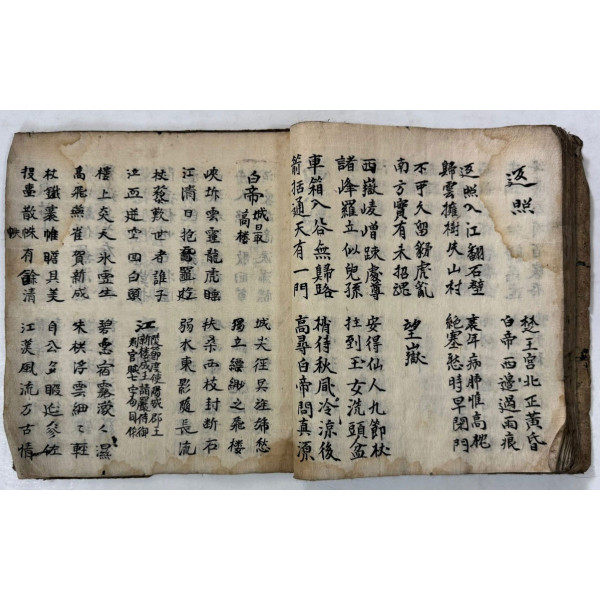 返照
楚王宮北正黃昏
白帝西邊過雨痕
返照入江翻石壁
歸雲擁樹失山村
衰年病肺惟高枕
絕塞愁時早閉門
不可久留豺虎亂
南方實有未招魂
望嶽
西嶽崚嶒竦處尊
諸峰羅立似兒孫
安得仙人九節杖
拄到玉女洗頭盆
車箱入谷無歸路
箭括通天有一門
稍待秋風冷涼後
高尋白帝問真源
白帝城最高樓
城尖徑昃旌旆愁
獨立縹緲之飛樓
峽坼雲霾龍虎睡
江清日抱黿鼉遊
扶桑西枝封斷石
弱水東影隨長流
杖藜歎世者誰子
泣血迸空回白頭
江陵節度使陽城郡王
新樓成王請嚴侍御
判官賦七字句同作
樓上炎天氷雪生
高飛燕雀賀新成
碧窓宿霧濛々濕
朱栱浮雲細々輕
杖鉞褰帷瞻具美
投壺散帙有餘清
自公多暇延參佐
江漢風流万古情